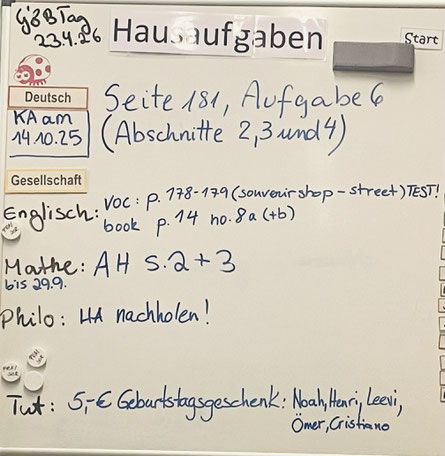 GÖB Tag
23.4.26
Hausaufgaben
Start
Deutsch
KA am
14.10.25
Seite 181, Aufgabe 6
(Abschnitte 2,3 und 4)
Gesellschaft
Englisch: voc: p. 178-179 (souvenir shop - street) TEST!
book p. 14 no. 8a (+b)
Mathe: AH S. 2 + 3
bis 29.9.
Philo: HA nachholen!
Tut: 5,-€ Geburtstagsgeschenk: Noah, Henri, Leevi,
Ömer, Cristiano